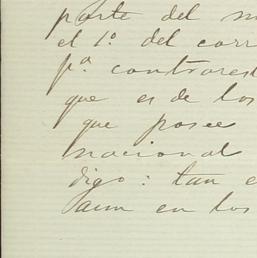 parte del m
el 1º. del corr
pª. contrarest
que es de los
que posee
nacional
digo: tan e
Saim en los